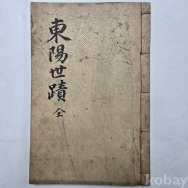 東陽世蹟 全
kobay